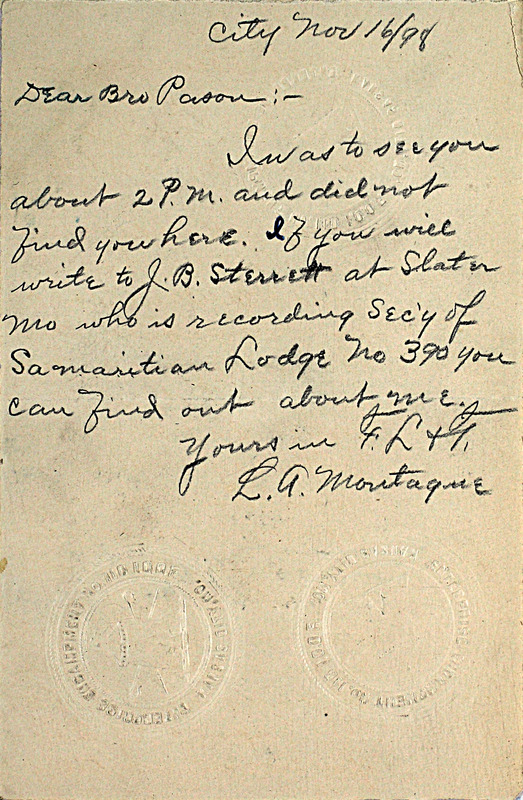 City Nov 16/98
Dear Bro Pason :-
I was to see you
about 2 P.M. and did not
find you here. If you will
write to J. B. Sterrett at Slater
Mo who is recording Sec'y of
Samaritian Lodge No 390 you
can find out about me.
Yours in F. L & T.
L. A. Montague
ENTERPRISE ENCAMPMENT
ENTERPRISE ENCAMPMENT